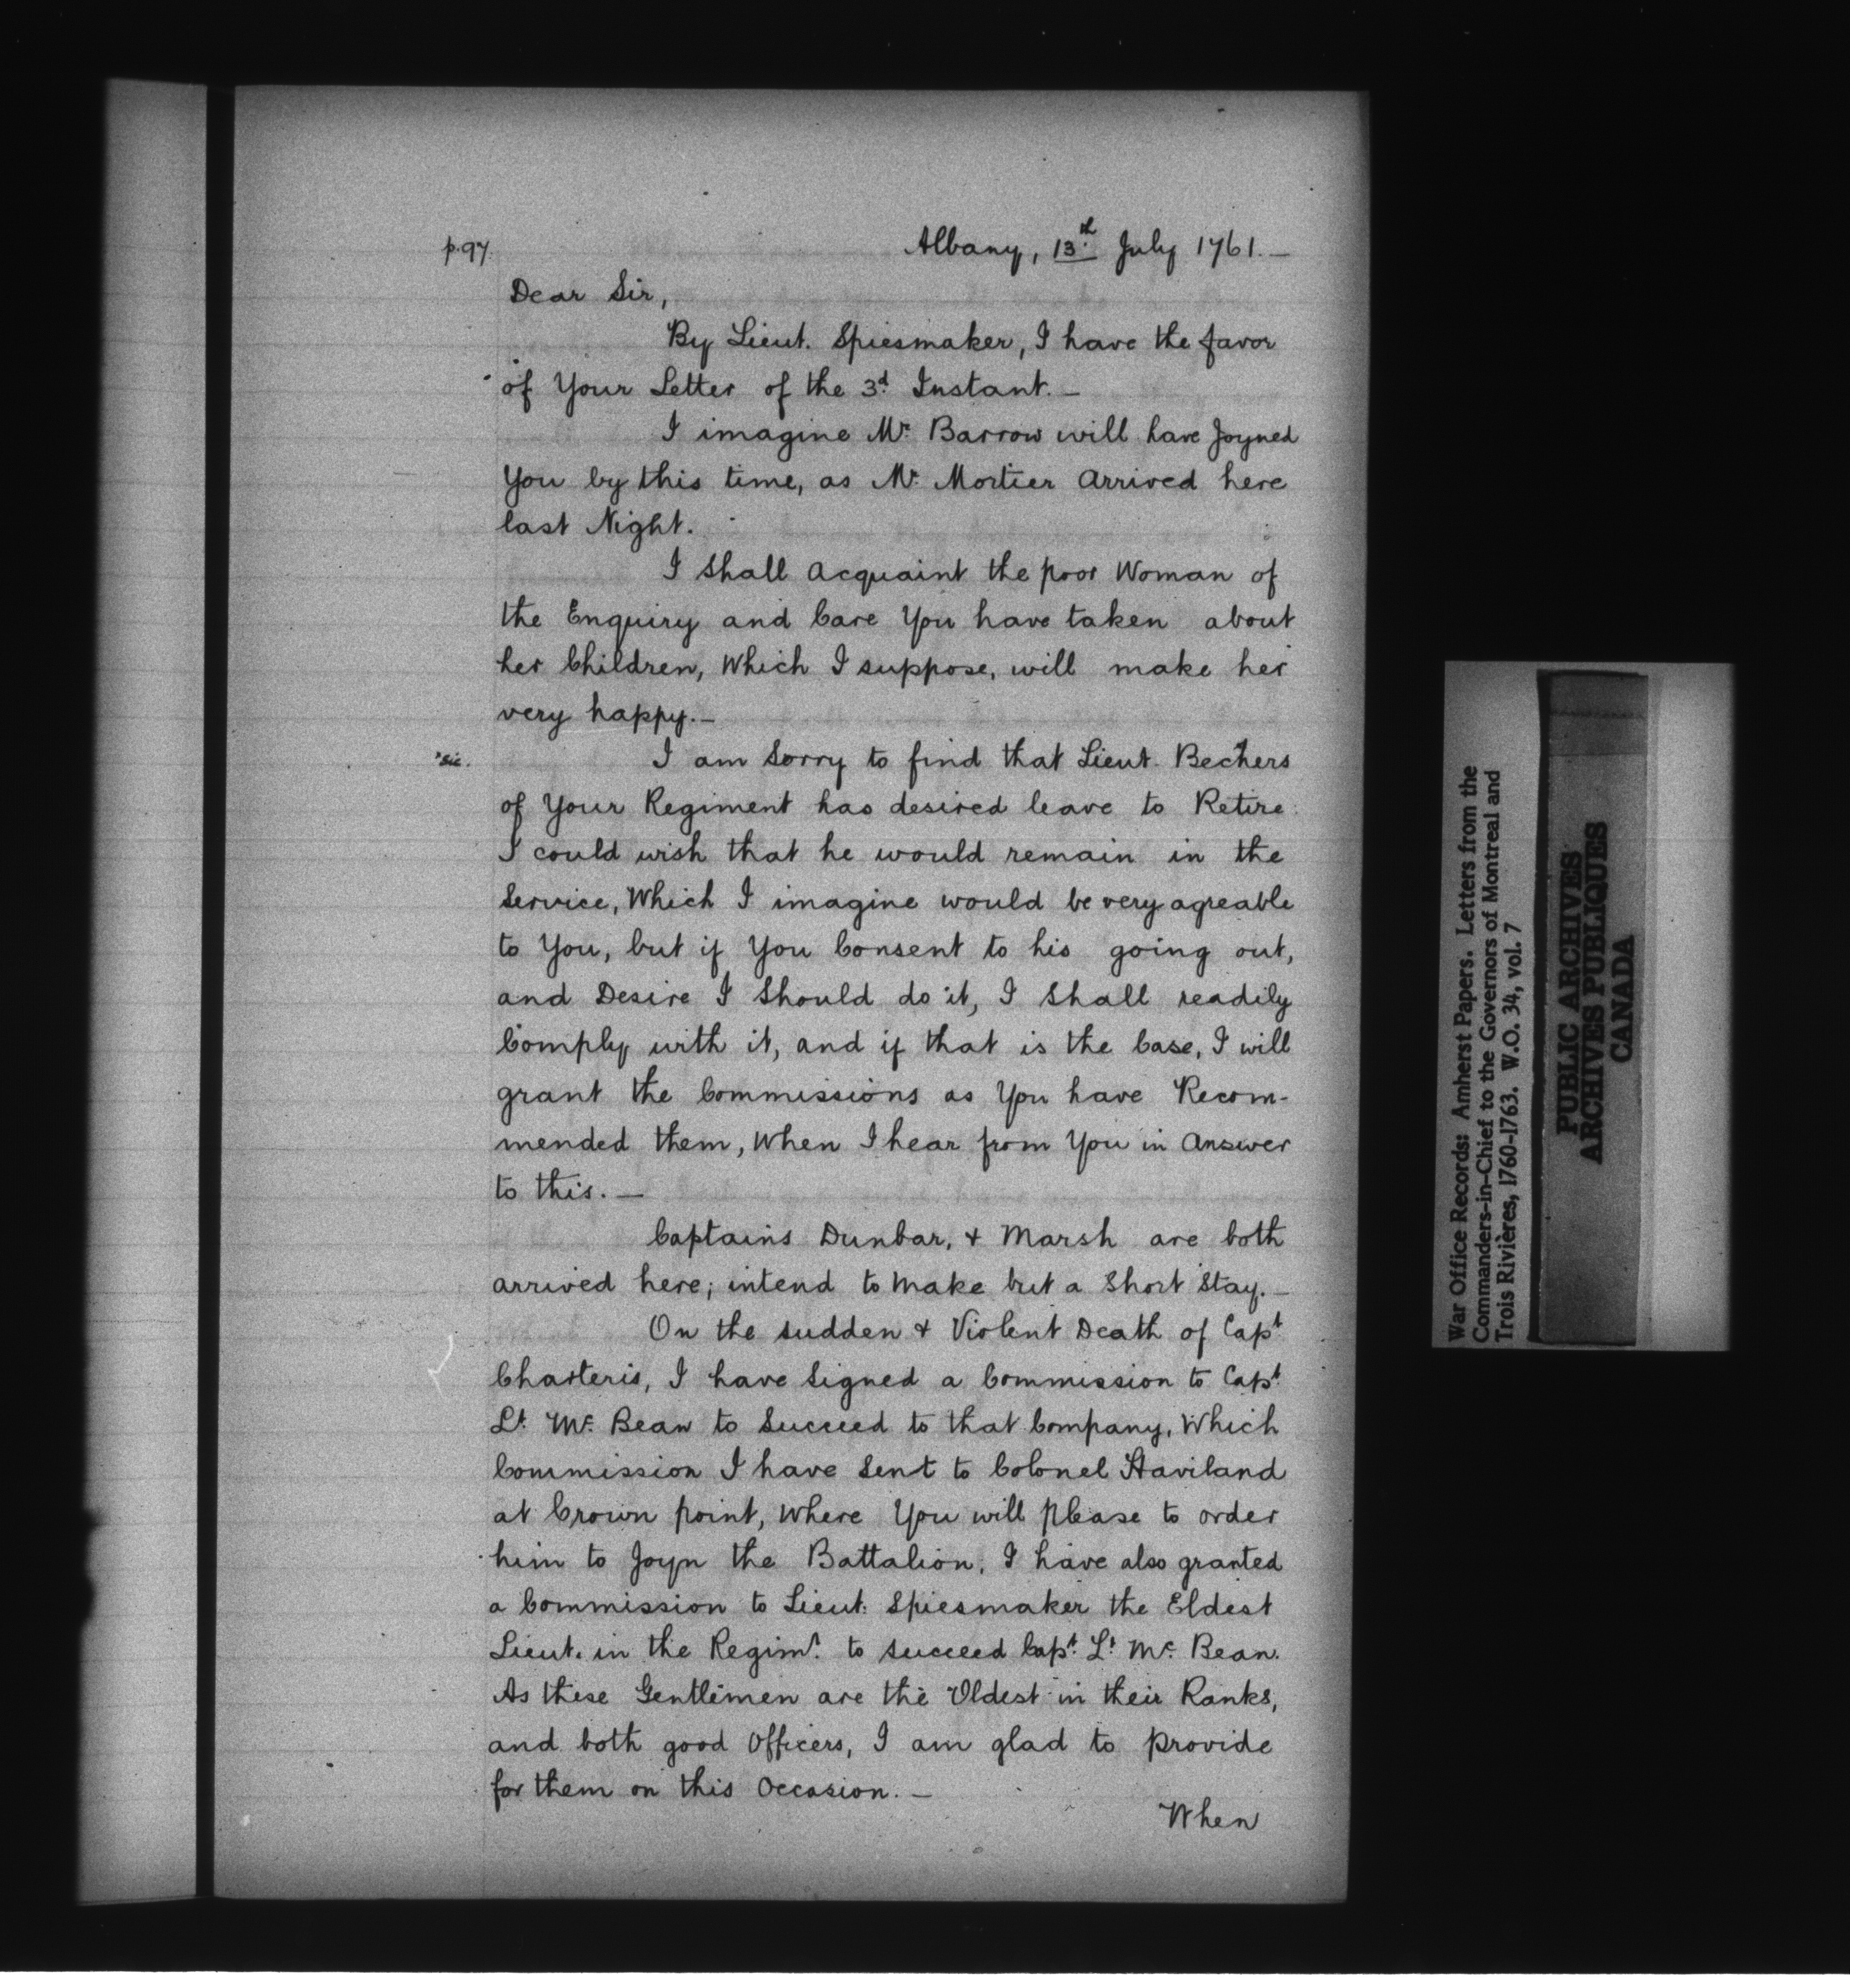 p.97.
Albany, 13th July 1761.—
Dear Sir,
By Lieut. Spiesmaker, I have the favor
of Your Letter of the 3d Instant.—
I imagine Mr. Barrow will have Joyned
You by this time, as Mr. Mortier Arrived here
last Night.
I Shall Acquaint the poor Woman of
the Enquiry and Care You have taken about
her Children, Which I suppose, will make her
very happy.—
*sic. I am Sorry to find that Lieut. Bechers
of Your Regiment has desired leave to Retire
I could wish that he would remain in the
Service, Which I imagine would be very agreable
to You, but if You Consent to his going out,
and Desire I Should do it, I Shall readily
Comply with it, and if that is the Case, I will
grant the Commissions as You have Recom-
mended them, When I hear from You in Answer
to this.—
Captains Dunbar, & Marsh are both
arrived here; intend to Make but a Short Stay.—
On the sudden & Violent Death of Capt.
Charteris, I have Signed a Commission to Capt.
Lt. Mc. Bean to Succeed to that Company, Which
Commission I have Sent to Colonel Haviland
at Crown point, Where You will Please to order
him to Joyn the Battalion, I have also granted
a Commission to Lieut. Spiesmaker the Eldest
Lieut. in the Regimt. to succeed Capt. Lt. Mc. Bean.
As these Gentlemen are the Oldest in their Ranks,
and both good Officers, I am glad to Provide
for them on this Occasion.—
When
War Office Records: Amherst Papers. Letters from the
Commanders-in-Chief to the Governors of Montreal and
Trois Rivières, 1760-1763. W.O. 34, vol. 7
PUBLIC ARCHIVES
ARCHIVES PUBLIQUES
CANADA